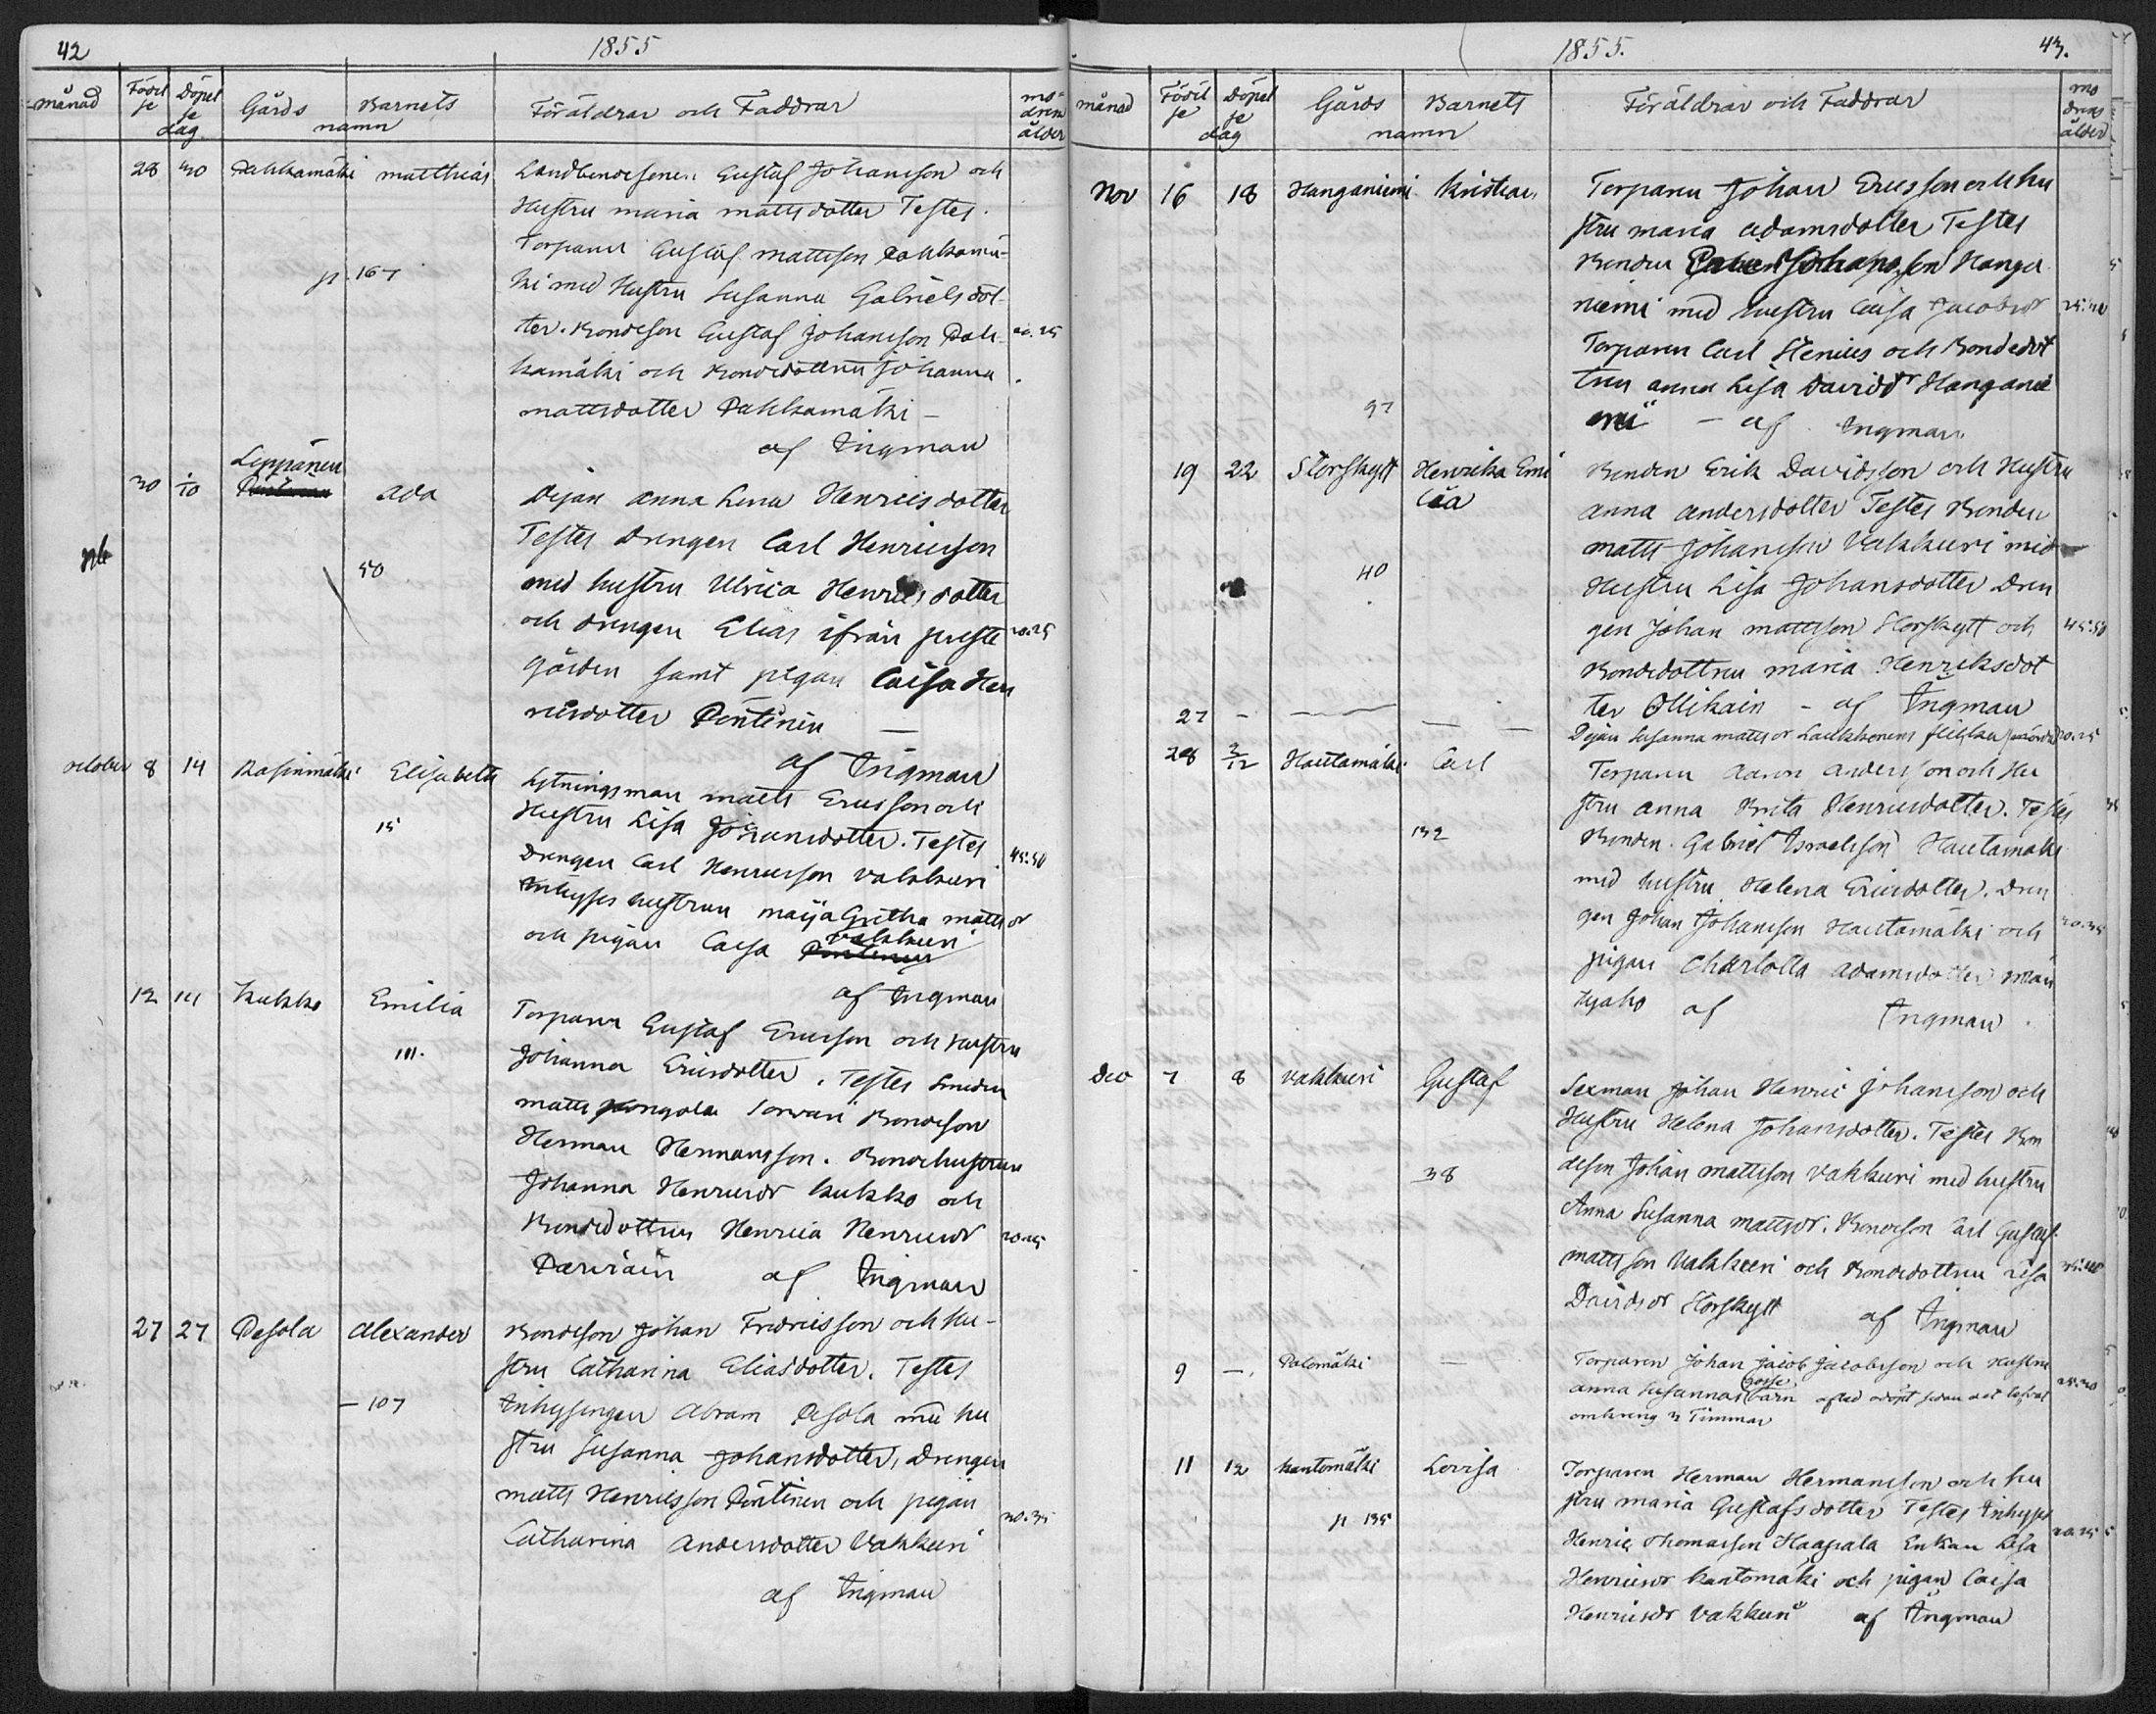 42
1855
månad
Födel se
Döpel se
dag
Gårds
Barnets
namn
Föräldrar och Faddrar
mo-
drens
ålder
28 30 Pakkamäki matthias Landbondesonen Gustaf Johansson och
Hustru maria mattsdotter Testes.
Torparen Gustaf mattsson Pakkamä-
p. 167
ki med Hustru Susanna Gabrielsdot-
ter. Bondeson Gustaf Johansson Pak- 20.25
kamäki och Bondedottren Johanna
mattsdotter Pakkamäki -
af Ingman
Leppänen
30 1/10 ada Pigan anna Lena Henricsdotter
Testes Drengen Carl Henricsson
50
med hustru Ulrica Henricsdotter
och drengen Elias ifrån preste 20.25
gården samt pigan Caisa Hen
ricsdotter Pöntinen -
af Ingman
october 8 14 Kasinmäki Elisabeth Lytningsman matts Ericsson och
15
Hustru Lisa Johansdotter. Testes
Drengen Carl Henricsson Vakkuri 45.50
Inhysses hustrun maija Gretha mattsdr
och pigan Caisa Vakkuri
af Ingman
12 14 Kukko Emilia Torparen Gustaf Ericsson och Hustru
111.
Johanna Ericsdotter. Testes Smeden
matts Kongola Sorvari Bondeson
Herman Hermansson. Bondehustrun
Johanna Henricsdr Kukko och
Bondedottren Henrica Henricsdr 20.25
af Ingman
27 27 Pesola Alexander Bondeson Johan Fredricsson och hu-
stru Catharina Eliasdotter. Testes
- 107
Inhysingen Abram Pesola med hu
stru Susanna Johansdotter, Drengen
matts Henricsson Pöntinen och pigan
30.35
Catharina Andersdotter Vakkuri
af Ingman
1855.
43.
månad
Födel se
Döpel se
dag
Gårds
Barnets
namn
Föräldrar och Faddrar
mo
drens
ålder
Nov 16 18 Hanganiemi Kristian Torparen Johan Ericsson och hu
stru maria Adamsdotter Testes
Bonden Johansson Hanga
niemi med hustru Caisa Jacobsdr
Torparen Carl Stenius och Bondedot
tren anna Lisa Davidsdr Hangani
97
emi - af Ingman
19 22 Storskytt Henrika Emi
lia
Bonden Erik Davidsson och Hustru
anna andersdotter Testes Bonden
matts Johansson Vakkuri med
40
Hustru Lisa Johansdotter Dren
gen Johan mattsson Storskytt och 45.50
Bondedottren maria Henriksdot
ter Ollikain - af Ingman
27 - - Pigan Susanna mattsdr Laukkonens flicka 20.25
28 2/12 Hautamäki Carl Torparen Aaron Andersson och Hu
stru anna Brita Henricsdotter. Testes
132
Bonden Gabriel Israelsson Hautamäki
med hustru Helena Ericsdotter. Dren
gen Johan Johansson Hautamäki och 30.35
pigan Charlotta Adamsdotter Män
tyaho af Ingman.
Dec 7 8 Vakkuri Gustaf Sexman Johan Henric Johansson och
Hustru Helena Johansdotter. Testes Bon
38
deson Johan mattsson Vakkuri med hustru
Anna Susanna mattsdr. Bondeson Carl Gustaf
mattsson Vakkuri och Bondedottren Lisa 35.40
Davidsdr Storskytt af Ingman
9 - Palomäki - Torparen Johan Jacob Jacobsson och Hustru
gosse
anna Susannas barn afled odöpt sedan det lefvat 25.30
omkring 2 Timmar
11 12 Kantomäki Lovisa Torparen Herman Hermansson och hu
stru maria Gustafsdotter Testes Inhyses
p 135
Henric Thomasson Haapala Enkan Lisa 20.25
Henricsdr Kantomäki och pigan Caisa
Henricsdr Vakkuri af Ingman